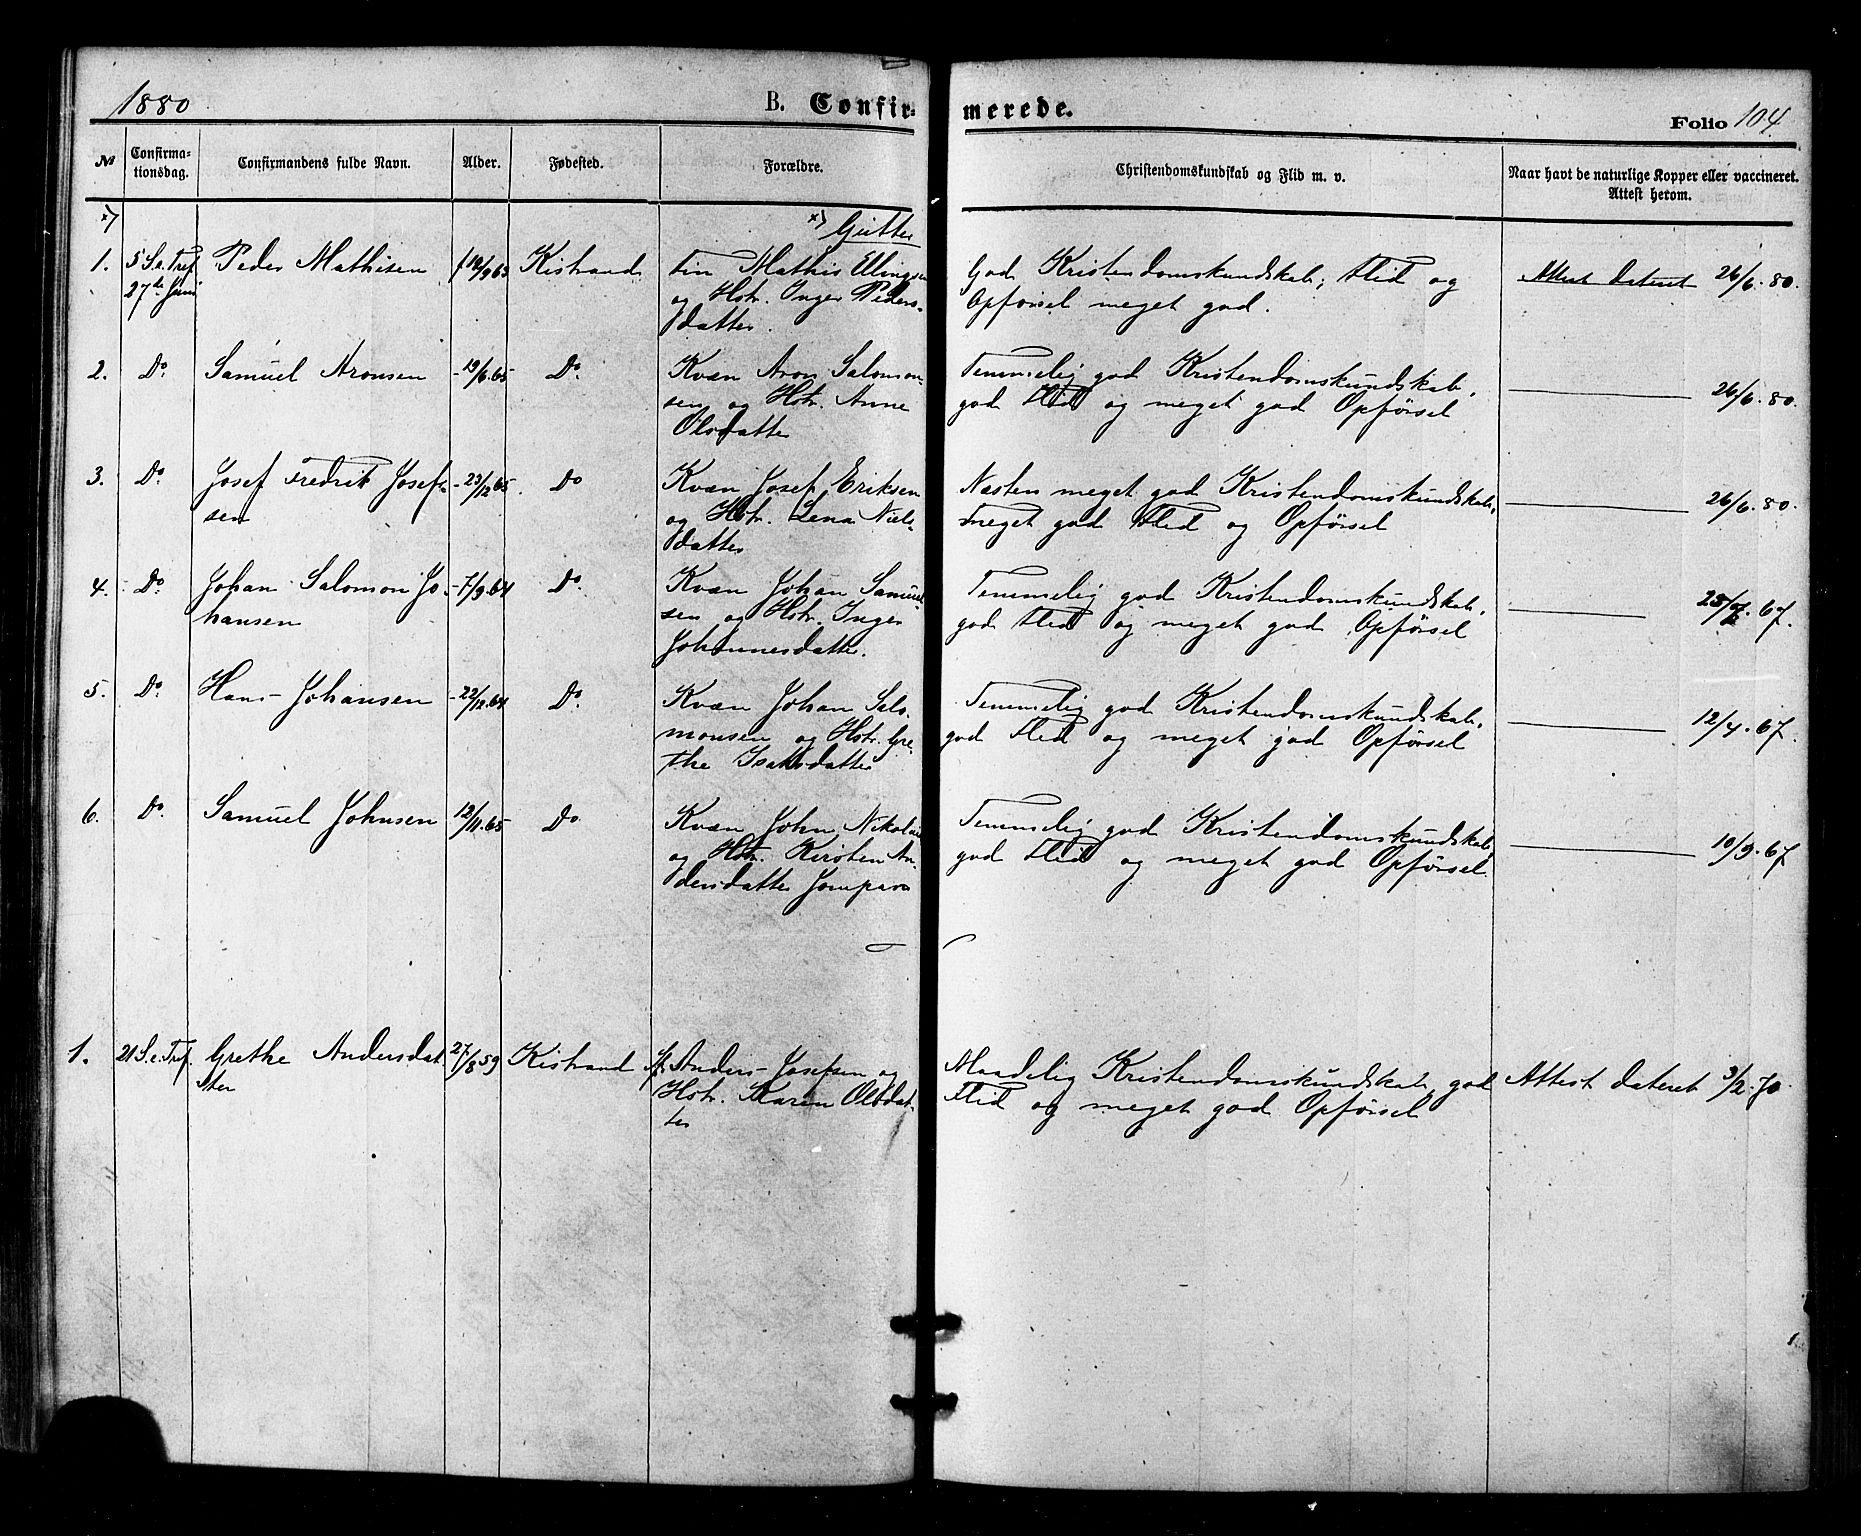 1880
B. Confirmerede.
Folio 104
№
Confirmationsdag.
Confirmandens fulde Navn.
Alder.
Fødested.
Forældre.
Christendomskundskab og Flid m. v.
Naar havt de naturlige Kopper eller vaccineret.
Attest herom.
x) x) Gutter
1. 5 S. e. Tref. Peder Mathisen Kistrand Fin Mathis Ellingsen God Kristendomskundskab, Flid og Attest dateret 26/6. 80.
27de Juni og Hstr. Inger Peders- Opførsel meget god.
datter.
2. Do. Samuel Aronsen - 19/6.65 Do. Kvæn Aron Salomon- Temmelig god Kristendomskundskab, 26/6. 80.
sen og Hstr. Anne god Flid og meget god Opførsel
Olsdatter
3. Do. Josef Fredrik Josef- - 23/12 65 Do Kvæn Josef Eriksen Næsten meget god Kristendomskundskab, 26/6. 80.
sen og Hstr. Lena Niels- meget god Flid og Opførsel
datter
4. - Do. Johan Salomon Jo- - 7/9.64 Do. Kvæn Johan Samuel- Temmelig god Kristendomskundskab, 67.
hansen sen og Hstr. Inger god Flid og meget god Opførsel
Johannesdatter.
5. Do. Hans Johansen - 22/12.64 Do. Kvæn Johan Salo- Temmelig god Kristendomskundskab, 12/4. 67.
monsen og Hstr. Gre- god Flid og meget god Opførsel
the Isaksdatter
6. Do. Samuel Johnsen 12/11.65 Do Kvæn John Nikolai Temmelig god Kristendomskundskab, 10/9. 67
og Hstr. Kirsten An- god Flid og meget god Opførsel
dersdatter Jompare
1. 21 S. e. Tref. Grethe Andersdat- 27/8 59 Kistrand Anders Josefsen og Maadelig Kristendomskundskab, god Attest dateret 3/2. 70.
ter Hstr. Karen Olsdat- Flid og meget god Opførsel
ter